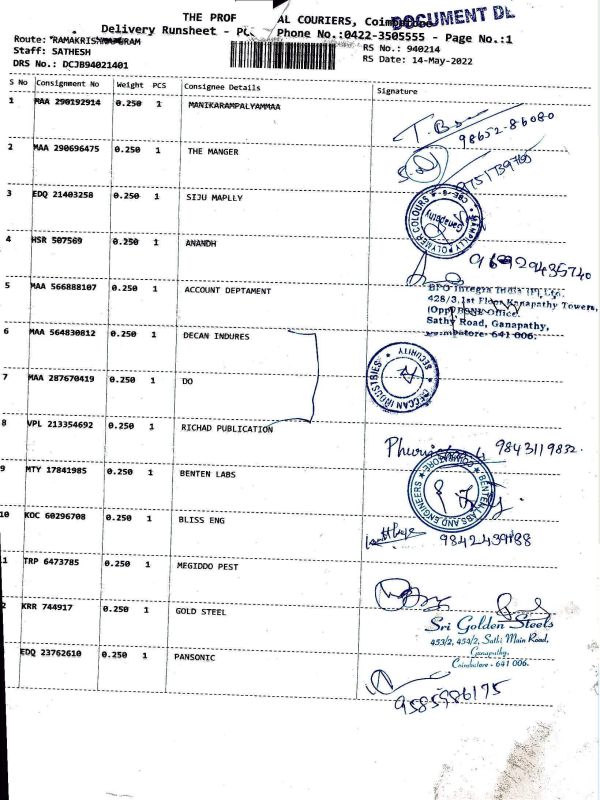 THE PROF AL COURIERS,
DOCUMENT DE
Delivery Runsheet - Phone No.:0422-3505555 - Page No.:1
Route: RAMAKRISHNAPURAM
RS No.: 940214
Staff: SATHESH
RS Date: 14-May-2022
DRS No.: DCJB94021401
S No Consignment No Weight PCS Consignee Details Signature
1 MAA 290192914 0.250 1 MANIKARAMPALYAMMAA
T. 98652-86080
2 MAA 290696475 0.250 1 THE MANGER
3 EDQ 21403258 0.250 1 SIJU MAPLLY
MAPILLY POLYMER COLOURS CBE-6 Ganapathy
4 HSR 507569 0.250 1 ANANDH
5 MAA 566888107 0.250 1 ACCOUNT DEPTAMENT
BPO Integra India (P) Ltd.,
428/3,1st Floor Kanapathy Towers,
(Opp) BSNL Office,
Sathy Road, Ganapathy,
641 006.
6 MAA 564830812 0.250 1 DECAN INDURES
DECCAN INDUSTRIES SECURITY
7 MAA 287670419 0.250 1 DO
8 VPL 213354692 0.250 1 RICHAD PUBLICATION
9843119832.
9 MTY 17841985 0.250 1 BENTEN LABS
BENTEN LABS AND ENGINEERS
10 KOC 60296708 0.250 1 BLISS ENG
1 TRP 6473785 0.250 1 MEGIDDO PEST
2 KRR 744917 0.250 1 GOLD STEEL
Sri Golden Steels
453/2, 454/2, Sathi Main Road,
Ganapathy,
Coimbatore - 641 006.
EDQ 23762610 0.250 1 PANSONIC
9585986175